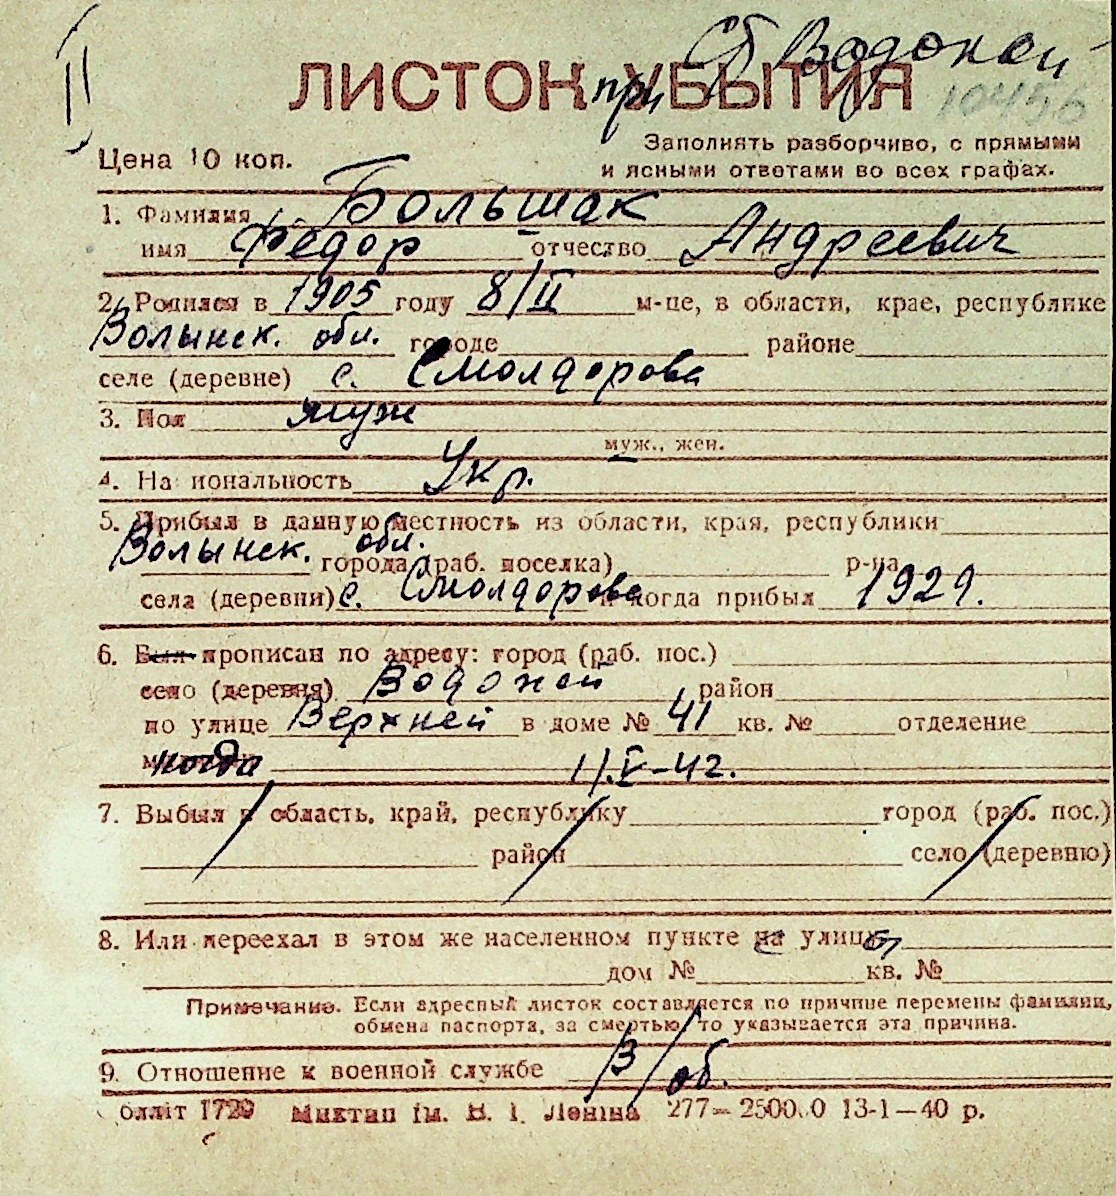 II
Ст Водопой
ЛИСТОК УБЫТИЯ
при
10456
Цена 10 коп.
Заполнять разборчиво, с прямыми
и ясными ответами во всех графах.
1. Фамилия Большак
имя Федор отчество Андреевич
2. Родился в 1905 году 8/II м-це, в области, крае, республике
Волынск. обл. городе районе
селе (деревне) с. Смолдорова
3. Пол муж
муж., жен.
4. Национальность Укр.
5. Прибыл в данную местность из области, края, республики
Волынск. обл. города (раб. поселка) р-на
села (деревни) с. Смолдорова и когда прибыл 1929.
6. Был прописан по адресу: город (раб. пос.)
село (деревня) Водопой район
по улице Верхней в доме № 41 кв. № отделение
когда 1/.V-42.
7. Выбыл в область, край, республику город (раб. пос.)
район село (деревню)
8. Или переехал в этом же населенном пункте на улицу
дом № кв. №
Примечание. Если адресный листок составляется по причине перемены фамилии,
обмена паспорта, за смертью, то указывается эта причина.
9. Отношение к военной службе в/об.
блліт 1729 Миктип ім. В. І. Леніна 277— 13-1—40 р.